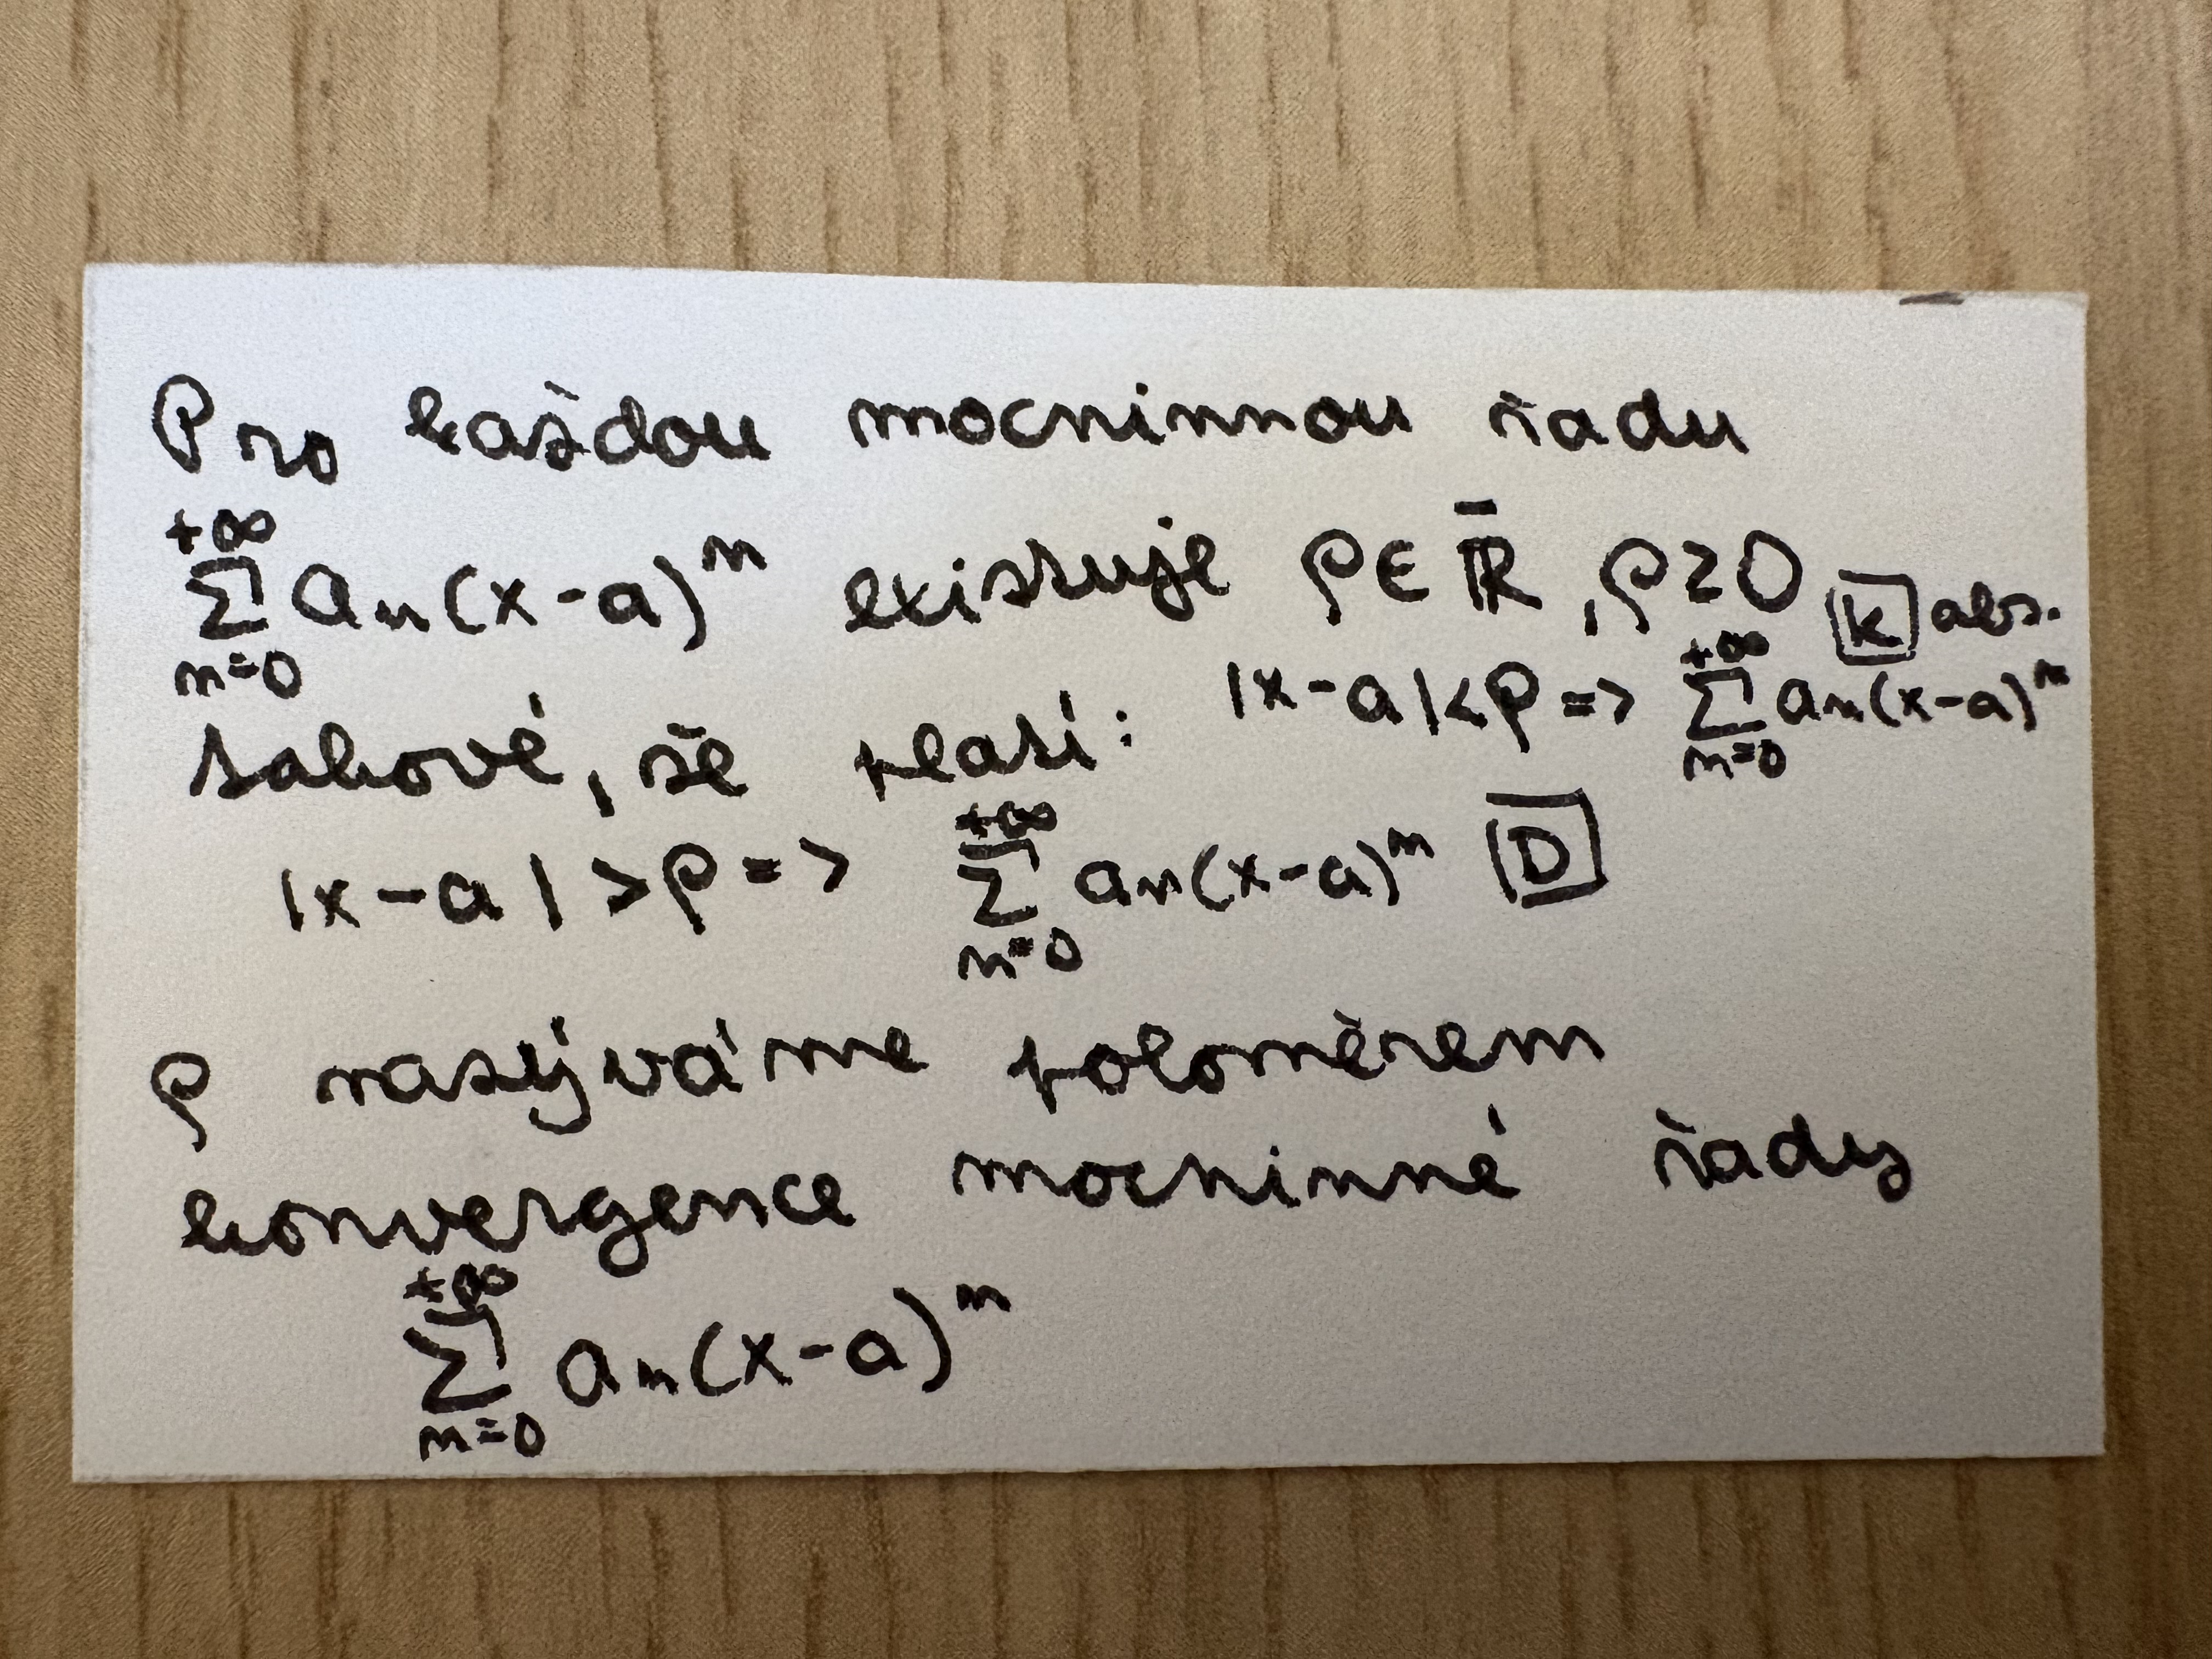 Pro každou mocninnou řadu
$\sum_{n=0}^{+\infty} a_n(x-a)^n$ existuje $\rho \in \bar{\mathbb{R}}, \rho \geq 0$
takové, že platí: $|x-a| < \rho \Rightarrow \sum_{n=0}^{+\infty} a_n(x-a)^n$ $\boxed{K}$ abs.
$|x-a| > \rho \Rightarrow \sum_{n=0}^{+\infty} a_n(x-a)^n$ $\boxed{D}$
$\rho$ nazýváme poloměrem
konvergence mocninné řady
$\sum_{n=0}^{+\infty} a_n(x-a)^n$